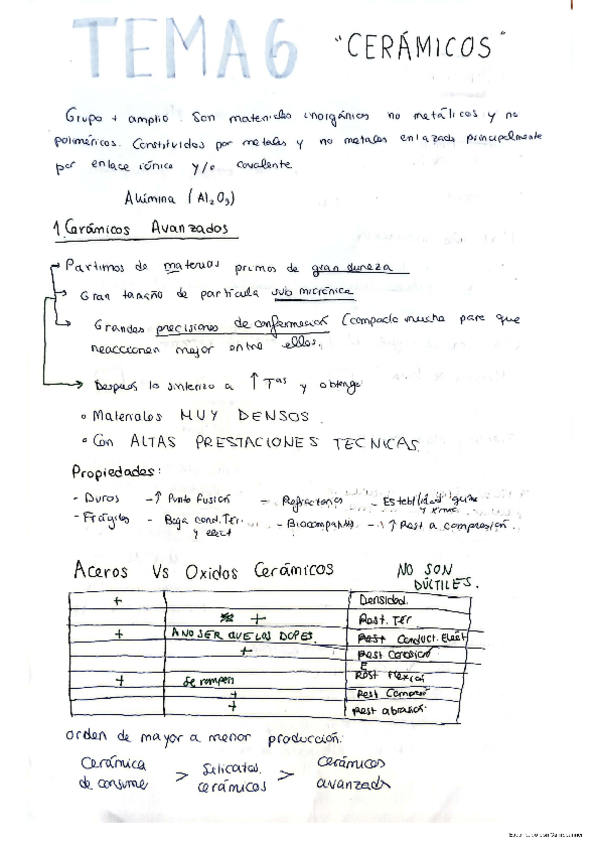 TEMA 6 "CERÁMICOS"
Grupo + amplio. Son materiales inorgánicos no metálicos y no
poliméricos. Constituidos por metales y no metales enlazados principalmente
por enlace iónico y/o covalente
Alúmina (Al₂O₃)
1. Cerámicos Avanzados
Partimos de materias primas de gran dureza
Gran tamaño de partícula submicrónica
Grandes precisiones de conformación (compacto mucho para que
reaccionen mejor entre ellos.
Después lo sinterizo a ↑ Tas y obtengo
• Materiales MUY DENSOS.
• Con ALTAS PRESTACIONES TECNICAS.
Propiedades:
- Duros - ↑ Punto fusión - Refractarios - Estabilidad y
- Frágiles - Baja cond. Ter. y elect - Biocompatibles - ↑ Rest a compresión.
Aceros Vs Oxidos Cerámicos NO SON
DÚCTILES.
+ Densidad.
+ Rest. Ter
+ A NO SER QUE LOS DOPES. Rest Conduct. Eléct
+ Rest Corrosión
+ Se rompen E Rest Flexión
+ Rest Compresió
+ Rest abrasión
orden de mayor a menor producción:
Cerámica > Silicatos > Cerámicos
de consumo cerámicos avanzados